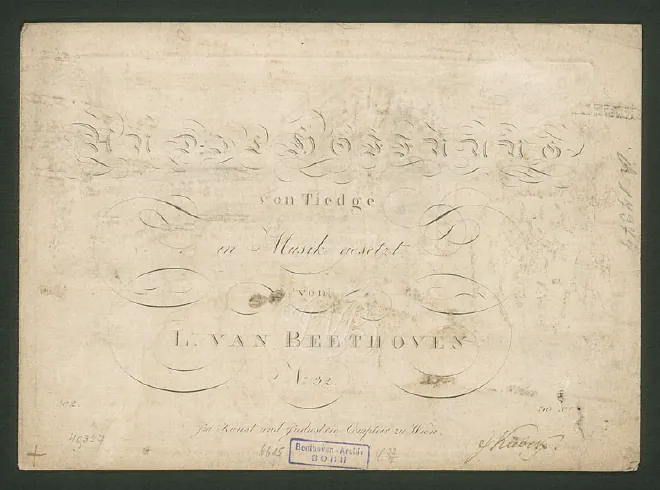 AN DIE HOFFNUNG
von Tiedge
in Musik gesetzt
von
L. VAN BEETHOVEN
No: 32
502.
Im Kunst und Industrie Comptoir zu Wien.
40327
Beethoven-Archiv
BONN